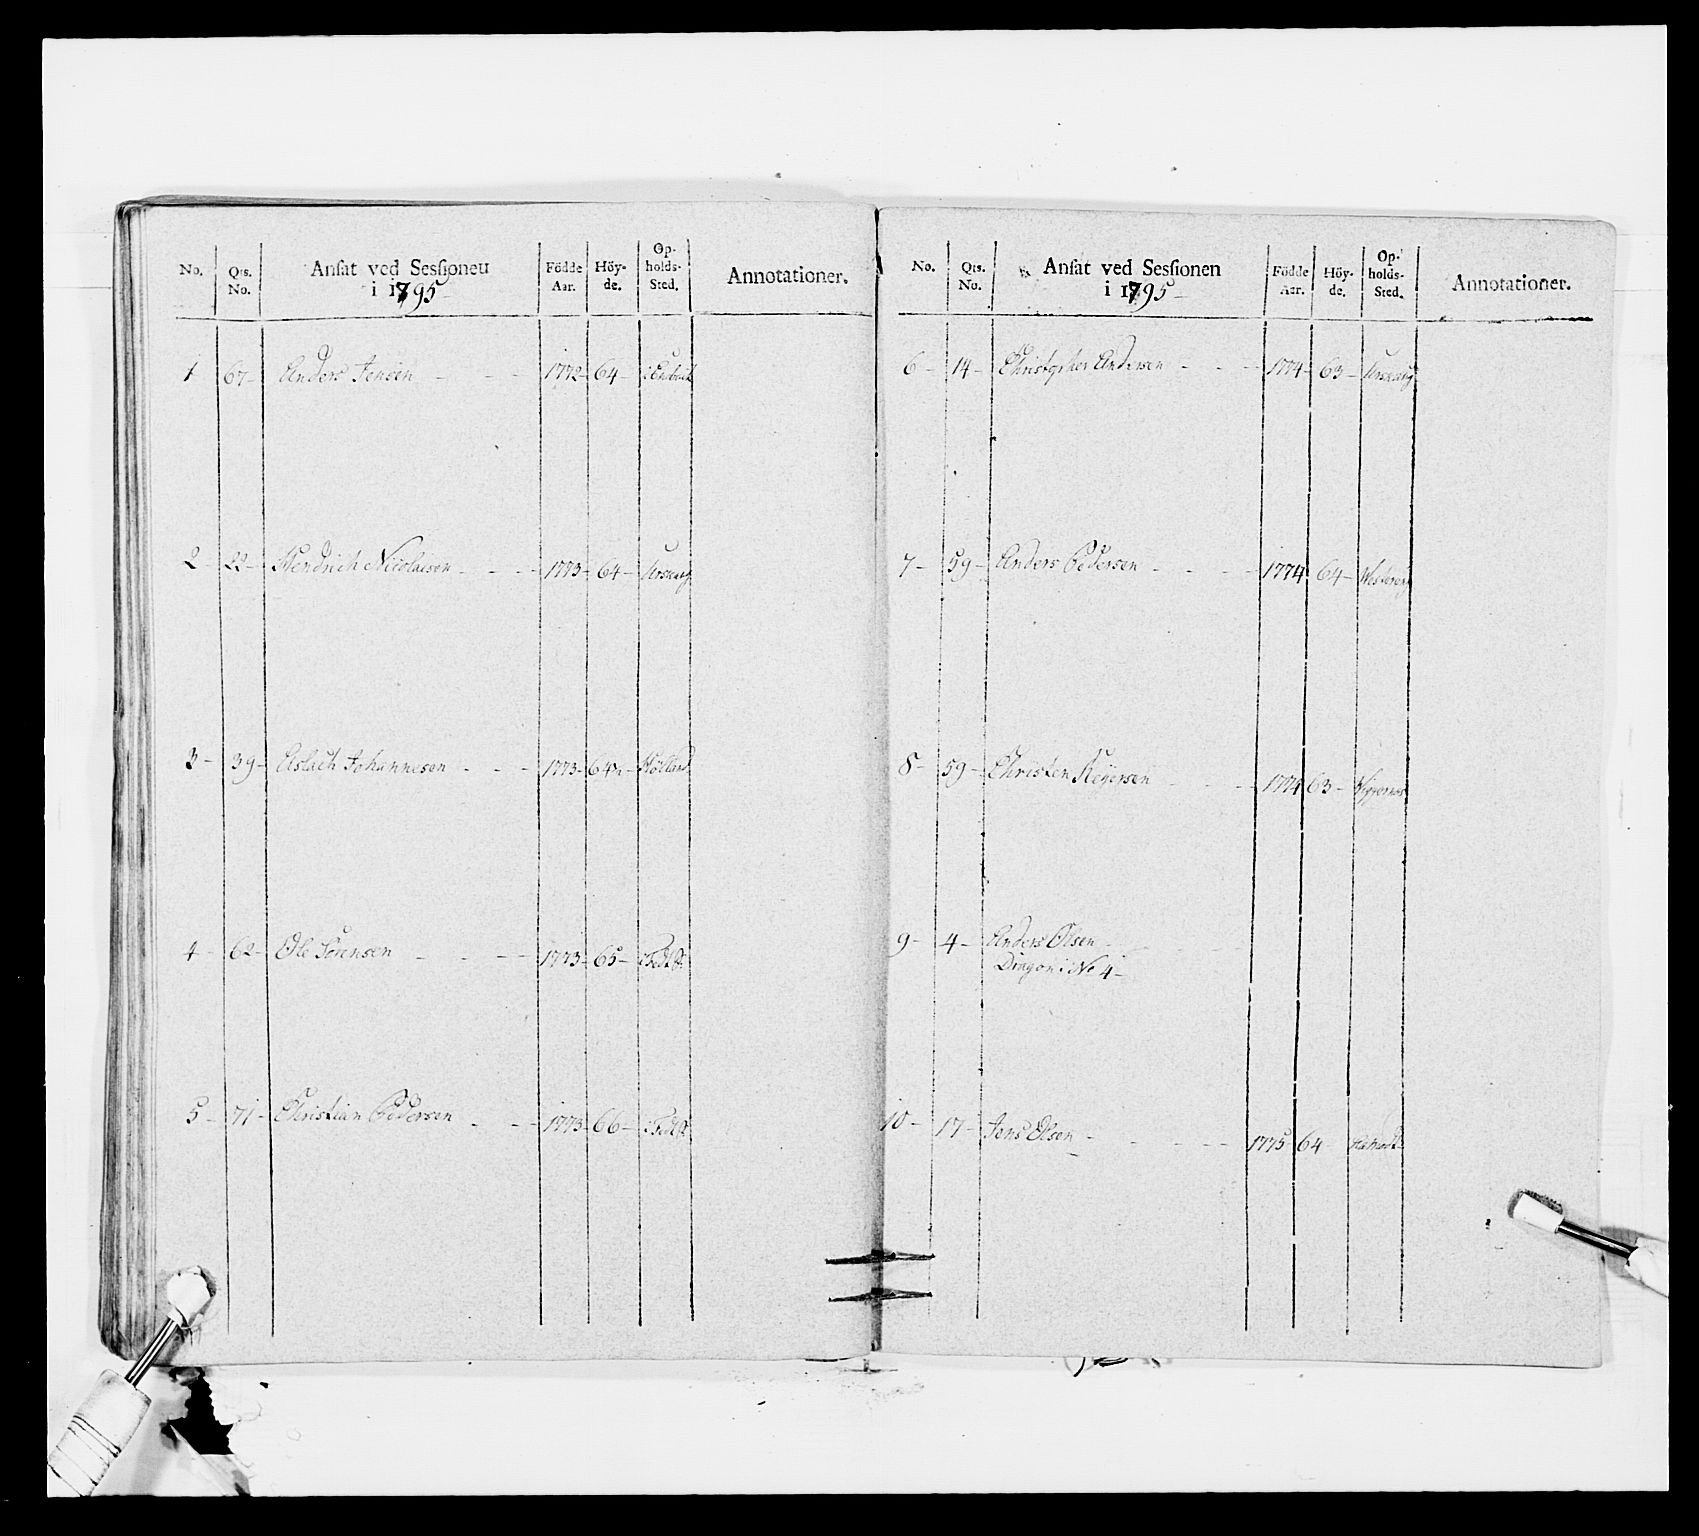 No. Qts. No. Ansat ved Sessionen i 1795 Födde Aar. Höyde. Opholds-Sted. Annotationer.
1 67 Anders Jensen 1772 64
2 22 Hendrich Nicolaisen 1773 64 Urskoug
3 39 Aslach Johannesen 1773 64½ Höeland
4 62 Ole Sörensen 1773 65
5 71 Christian Pedersen 1773 66
No. Qts. No. Ansat ved Sessionen i 1795 Födde Aar. Höyde. Opholds-Sted. Annotationer.
6 14 Christopher Andersen 1774 63 Urskoug
7 59 Anders Pedersen 1774 64
8 59 Christen Reyersen 1774 63
9 4 Anders Olsen
Dragon i No 4
10 17 Jens Olsen 1775 64